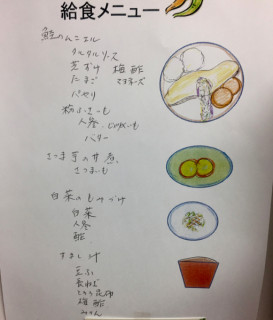 給食メニュー
鮭のムニエル
タルタルソース
たまご マヨネーズ
パセリ
粉ふきいも
人参 じゃがいも
バター
さつま芋の甘煮
さつまいも
白菜のもみづけ
白菜
人参
酢
すまし汁
豆ふ
長ねぎ
とろろ昆布
みりん